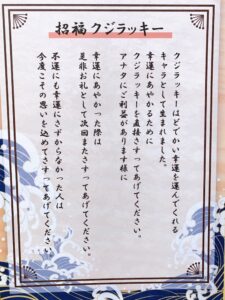 招福 クジラッキー
クジラッキーはどでかい幸運を運んでくれる
キャラとして生まれました。
幸運にあやかるために
クジラッキーを直接さすってあげてください。
アナタにご利益があります様に
幸運にあやかった際は
是非お礼として次回またさすってあげてください。
不運にも幸運にさずからなかった人は
今度こその思いを込めてさすってあげてください。